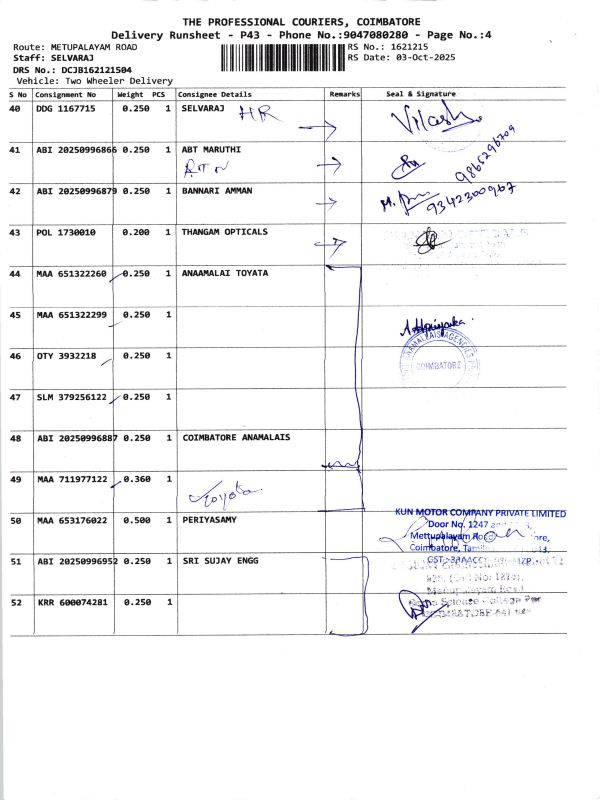 THE PROFESSIONAL COURIERS, COIMBATORE
Delivery Runsheet - P43 - Phone No.:9047080280 - Page No.:4
Route: METUPALAYAM ROAD RS No.: 1621215
Staff: SELVARAJ RS Date: 03-Oct-2025
DRS No.: DCJB162121504
Vehicle: Two Wheeler Delivery
S No Consignment No Weight PCS Consignee Details Remarks Seal & Signature
40 DDG 1167715 0.250 1 SELVARAJ HR
Vilash
41 ABI 20250996866 0.250 1 ABT MARUTHI
9865296709
42 ABI 20250996879 0.250 1 BANNARI AMMAN
9342300967
43 POL 1730010 0.200 1 THANGAM OPTICALS
44 MAA 651322260 0.250 1 ANAAMALAI TOYATA
45 MAA 651322299 0.250 1
46 OTY 3932218 0.250 1
COIMBATORE
47 SLM 379256122 0.250 1
48 ABI 20250996887 0.250 1 COIMBATORE ANAMALAIS
49 MAA 711977122 0.360 1
Toyota
50 MAA 653176022 0.500 1 PERIYASAMY
KUN MOTOR COMPANY PRIVATE LIMITED
Door No. 1247
Mettupalayam Road
Coimbatore,
51 ABI 20250996952 0.250 1 SRI SUJAY ENGG
Mettupalayam Road
52 KRR 600074281 0.250 1